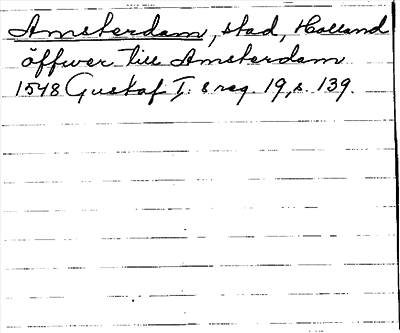 Amsterdam, stad, Holland
öffwer till Amsterdam
1548 Gustaf I: s reg. 19, s. 139.